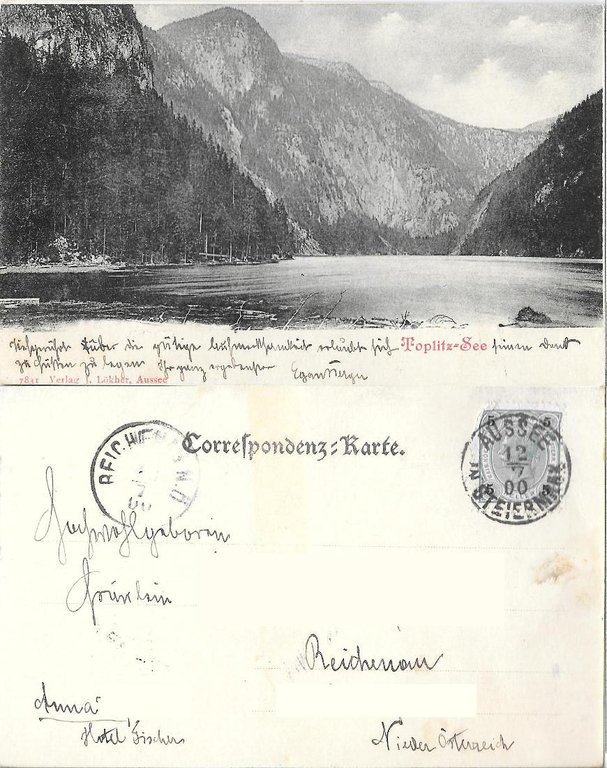 über die gütige Aufmerksamkeit erlaubt sich Toplitz-See seinen Dank
zu Füssen zu legen Ihr ganz ergebenster Egon Berger
7841 Verlag J. Lökher, Aussee
Correspondenz-Karte.
REICHENAU N.Ö.
AUSSEE IN STEIERMARK
12
7
00
5 5
Hochwohlgeboren
Fräulein
Reichenau
Anna
Hotel Fischers
Nieder Österreich